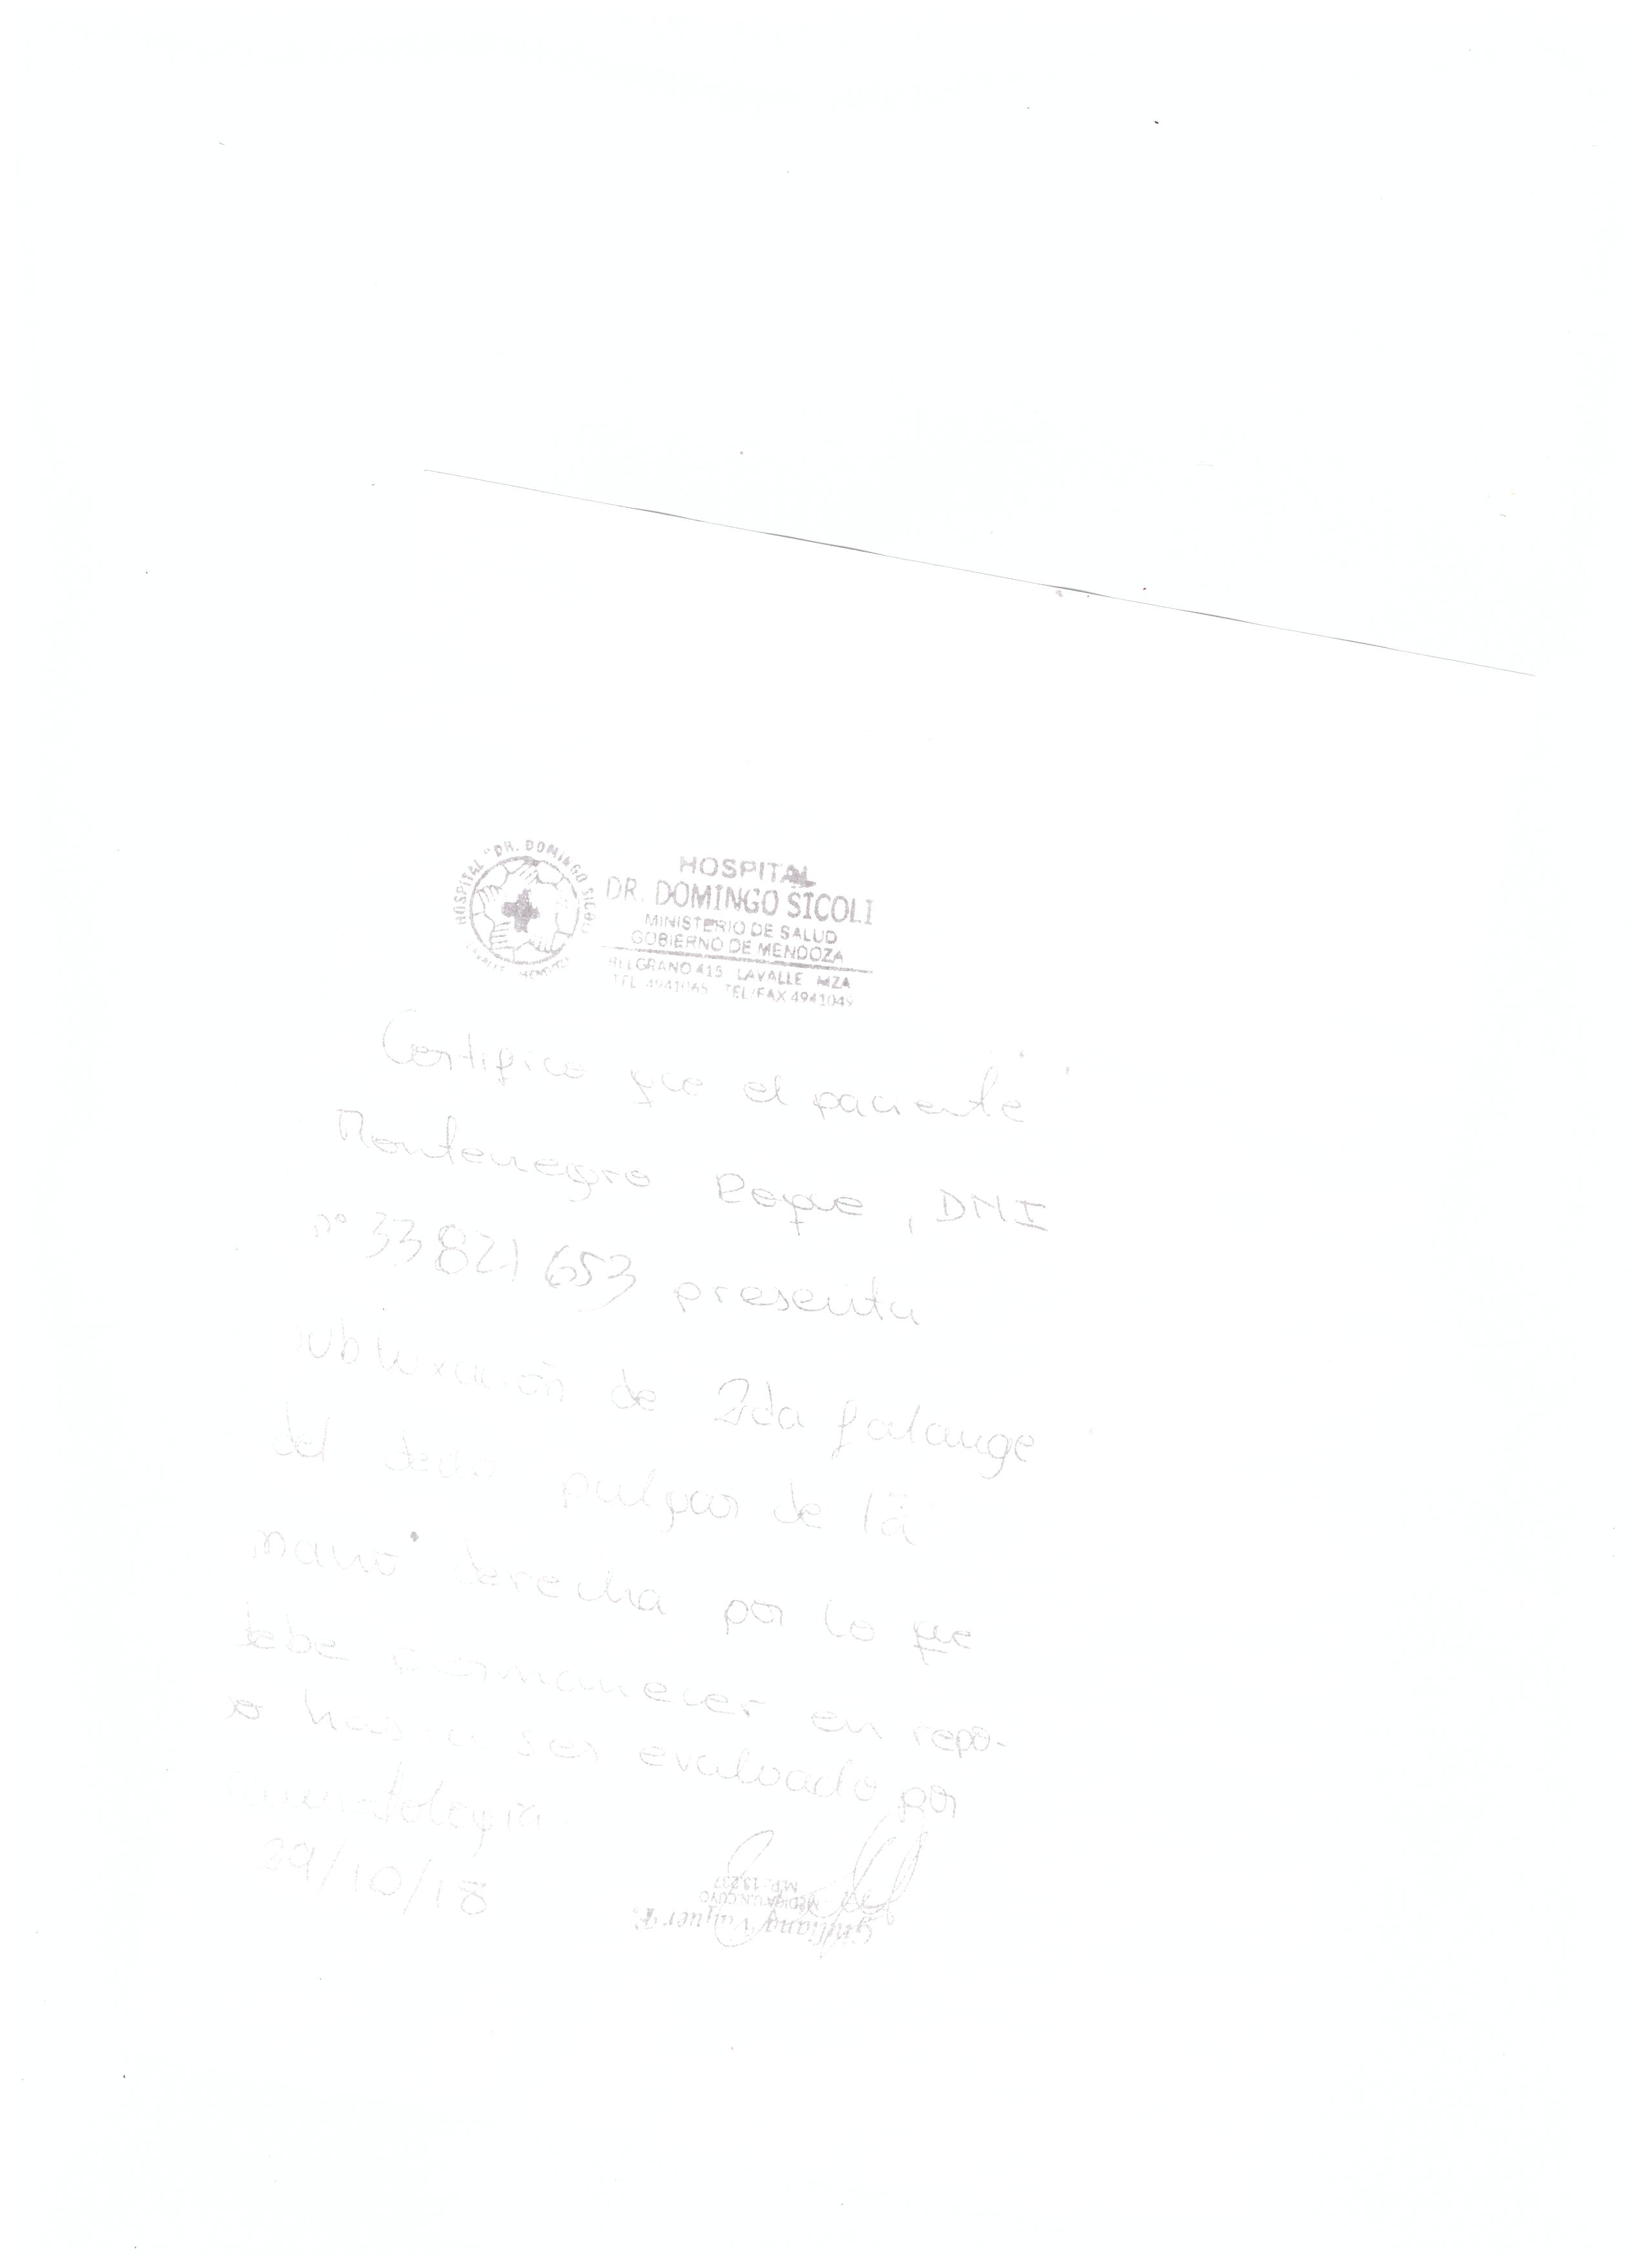 HOSPITAL "DR. DOMINGO SICOLI"
LAVALLE MENDOZA
HOSPITAL
DR. DOMINGO SICOLI
MINISTERIO DE SALUD
GOBIERNO DE MENDOZA
BELGRANO 415 LAVALLE MZA
TEL 4941065 TEL/FAX 4941049
Certifico que el paciente
Montenegro Roque, DNI
nº 33821653 presenta
subluxación de 2da falange
del dedo pulgar de la
mano derecha por lo que
debe permanecer en repo-
so hasta ser evaluado por
29/10/18
M.P.: 13.237